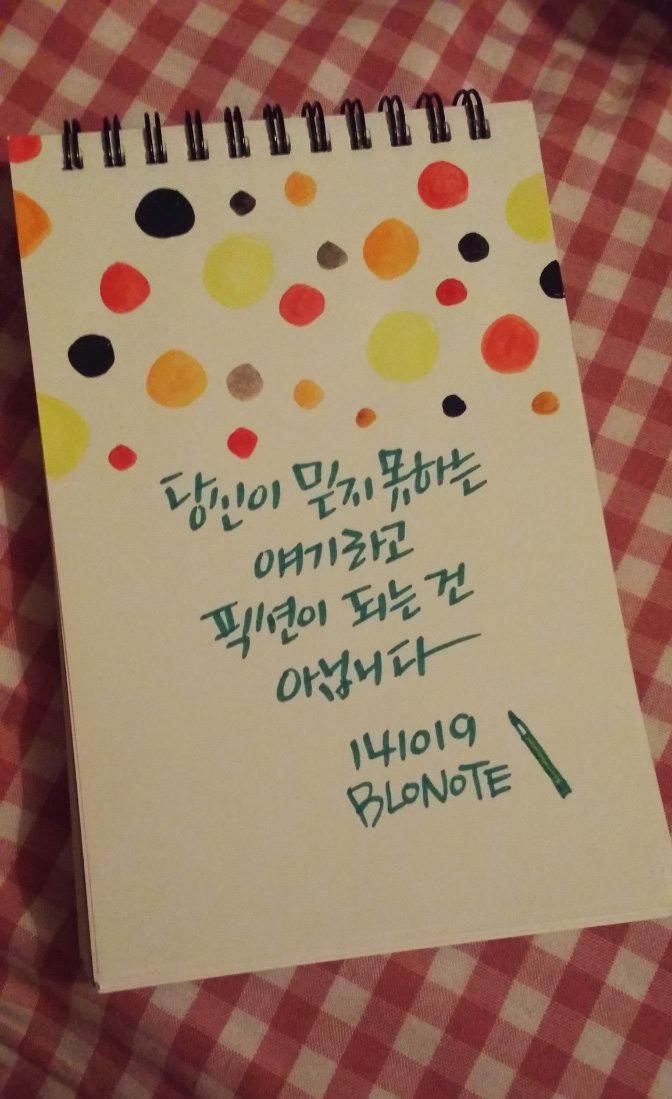 당신이 믿지 못하는
얘기라고
픽션이 되는 건
아닙니다
141019
BLONOTE